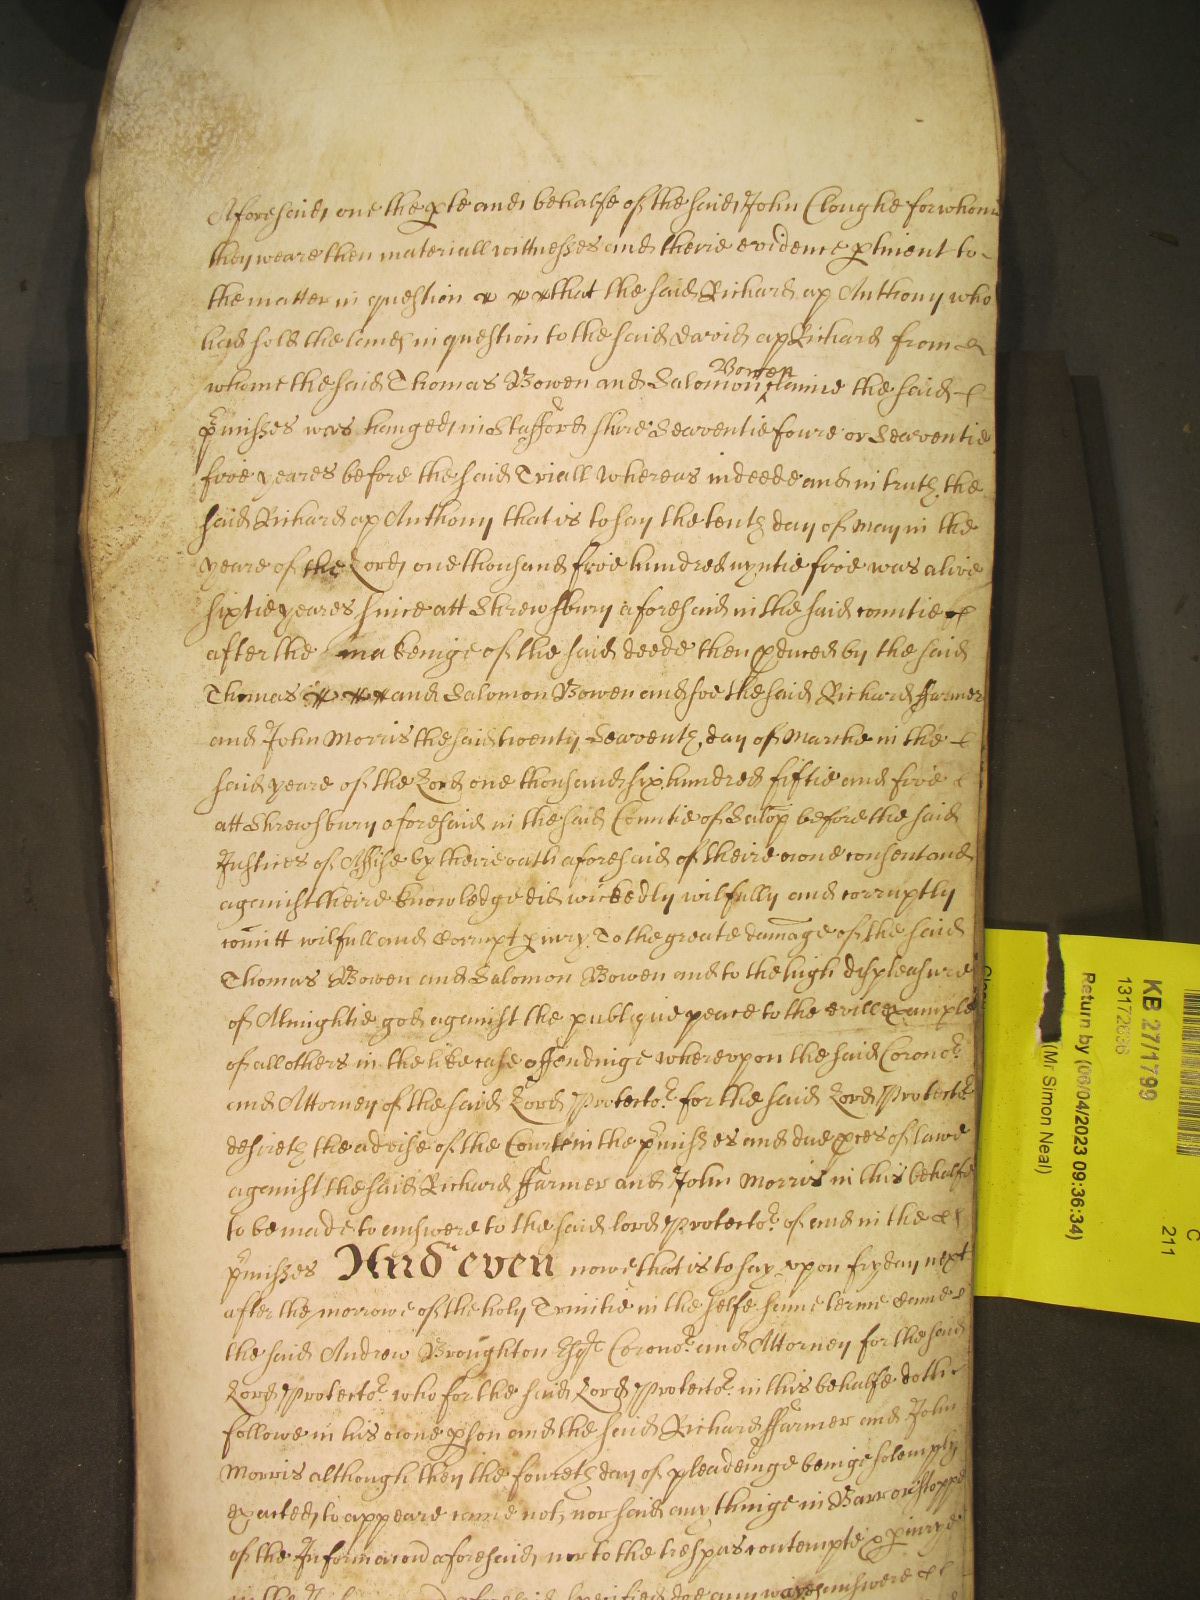 Aforesaid one the pte and behalfe of the said John Cloughe for whom
they weare then materiall wittnesses and theire evidence ptinent to
the matter in question that the said Richard ap Anthony who
had sold the lands in question to the said David ap Richard from
whome the said Thomas Bowen and Salomon Bowen claime the said
pmisses was hanged in Stafford shire Seaventie foure or Seaventie
five yeares before the said Triall Whereas indeede and in truth the
said Richard ap Anthony that is to say the tenth day of May in the
yeare of the Lord one thousand five hundred nyntie five was alive
sixtie yeares since att Shrewsbury aforesaid in the said countie
after the makeinge of the said deede then pduced by the said
Thomas and Salomon Bowen and soe the said Richard ffarmer
and John Morris the said twenty Seaventh day of Marche in the
said yeare of the Lord one thousand six hundred fiftie and five
att Shrewsbury aforesaid in the said Countie of Salop before the said
Justices of Assise by theire oath aforesaid of theire owne consent and
against theire knowledge did wickedly wilfully and corruptly
comitt wilfull and Corrupt piury To the greate damage of the said
Thomas Bowen and Salomon Bowen and to the high displeasure
of Almightie god against the publique peace to the evill example
of all others in the like case offendinge whereupon the said Coronor
and Attorney of the said Lord Protector for the said Lord Protector
desireth the advise of the Court in the pmisses and due pces of lawe
against the said Richard ffarmer and John Morris in this behalfe
to be made to answere to the said lord Protector of and in the
pmisses And even nowe that is to say upon fryday next
after the morrowe of the holy Trinitie in the selfe same terme came
the said Andrew Broughton Esqr Coronor and Attorney for the said
Lord Protector who for the said Lord Protector in this behalfe doth
followe in his owne pson and the said Richard ffarmer and John
Morris although then the foureth day of pleadeinge beinge solemply
exacted to appeare came not, nor said any thinge in Barr or stoppe
of the Informacon aforesaid nor to the trespas contempte & piurye
in the aforesaid specified doe any wayes answere
KB 27/1799
13172636
Return by (06/04/2023 09:36:34)
(Mr Simon Neal)
C
211